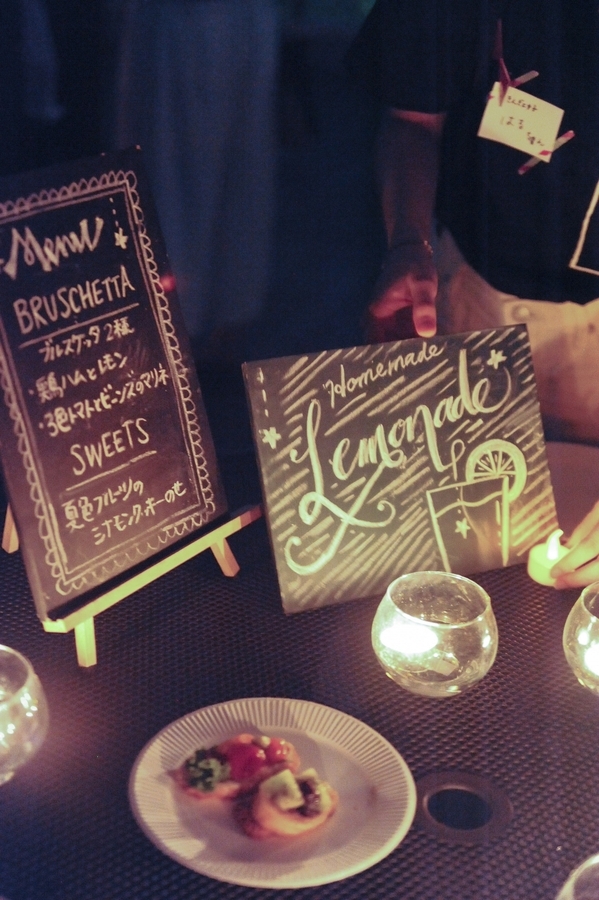 Menu
BRUSCHETTA
ブルスケッタ2種
・鶏ハムとレモン
・3色トマトとビーンズのマリネ
SWEETS
夏色フルーツの
シナモンクッキーのせ
Homemade
Lemonade
はる